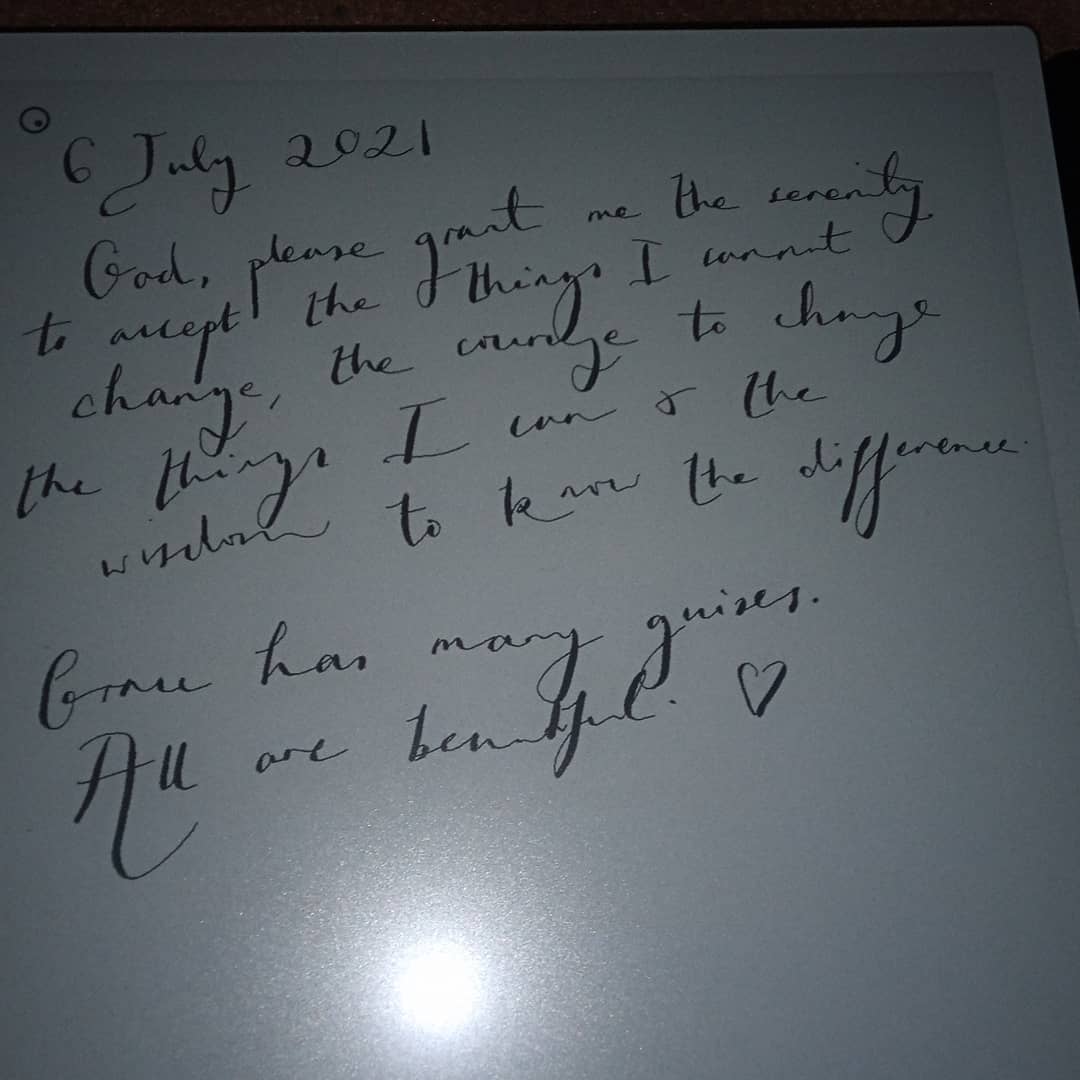 6 July 2021
God, please grant me the serenity
to accept the things I cannot
change, the courage to change
the things I can & the
wisdom to know the difference.
Grace has many guises.
All are beautiful. ♡